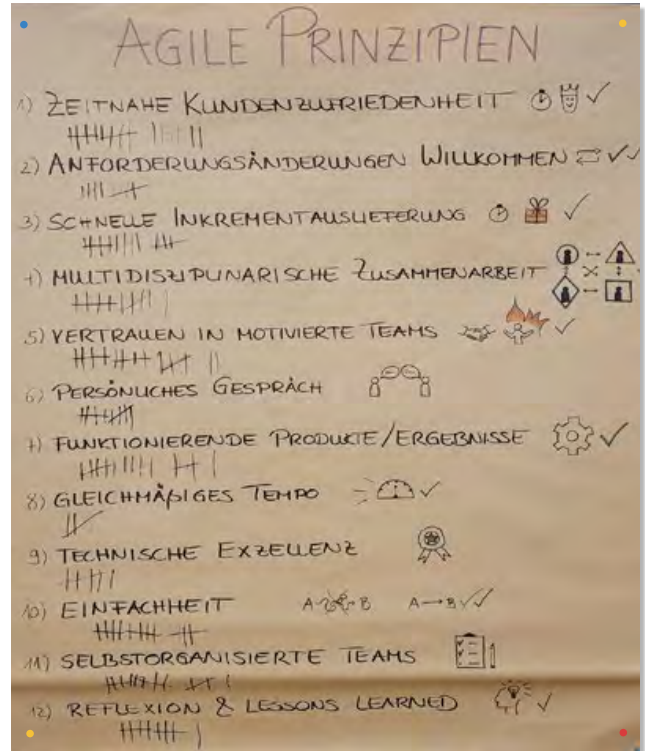 AGILE PRINZIPIEN
1) ZEITNAHE KUNDENZUFRIEDENHEIT
2) ANFORDERUNGSÄNDERUNGEN WILLKOMMEN
3) SCHNELLE INKREMENTAUSLIEFERUNG
4) MULTIDISZIPLINARISCHE ZUSAMMENARBEIT
5) VERTRAUEN IN MOTIVIERTE TEAMS
6) PERSÖNLICHES GESPRÄCH
7) FUNKTIONIERENDE PRODUKTE/ERGEBNISSE
8) GLEICHMÄßIGES TEMPO
9) TECHNISCHE EXZELLENZ
10) EINFACHHEIT A B A→B
11) SELBSTORGANISIERTE TEAMS
12) REFLEXION & LESSONS LEARNED